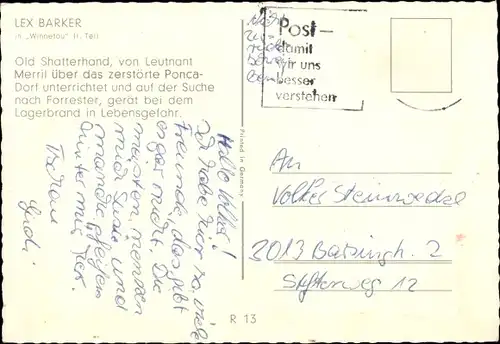 LEX BARKER
in „Winnetou“ (1. Teil)
Old Shatterhand, von Leutnant
Merril über das zerstörte Ponca-
Dorf unterrichtet und auf der Suche
nach Forrester, gerät bei dem
Lagerbrand in Lebensgefahr.
Hallo Volker!
Ich habe hier so viele
Freunde, das gibt
es gar nicht. Die
meisten nennen
mich Susi und
manche pfeifen
hinter mir her.
Tschau
Printed in Germany
R 13
Post –
damit
wir uns
besser
verstehen
An
Volker
2013 2
Stifterweg 12